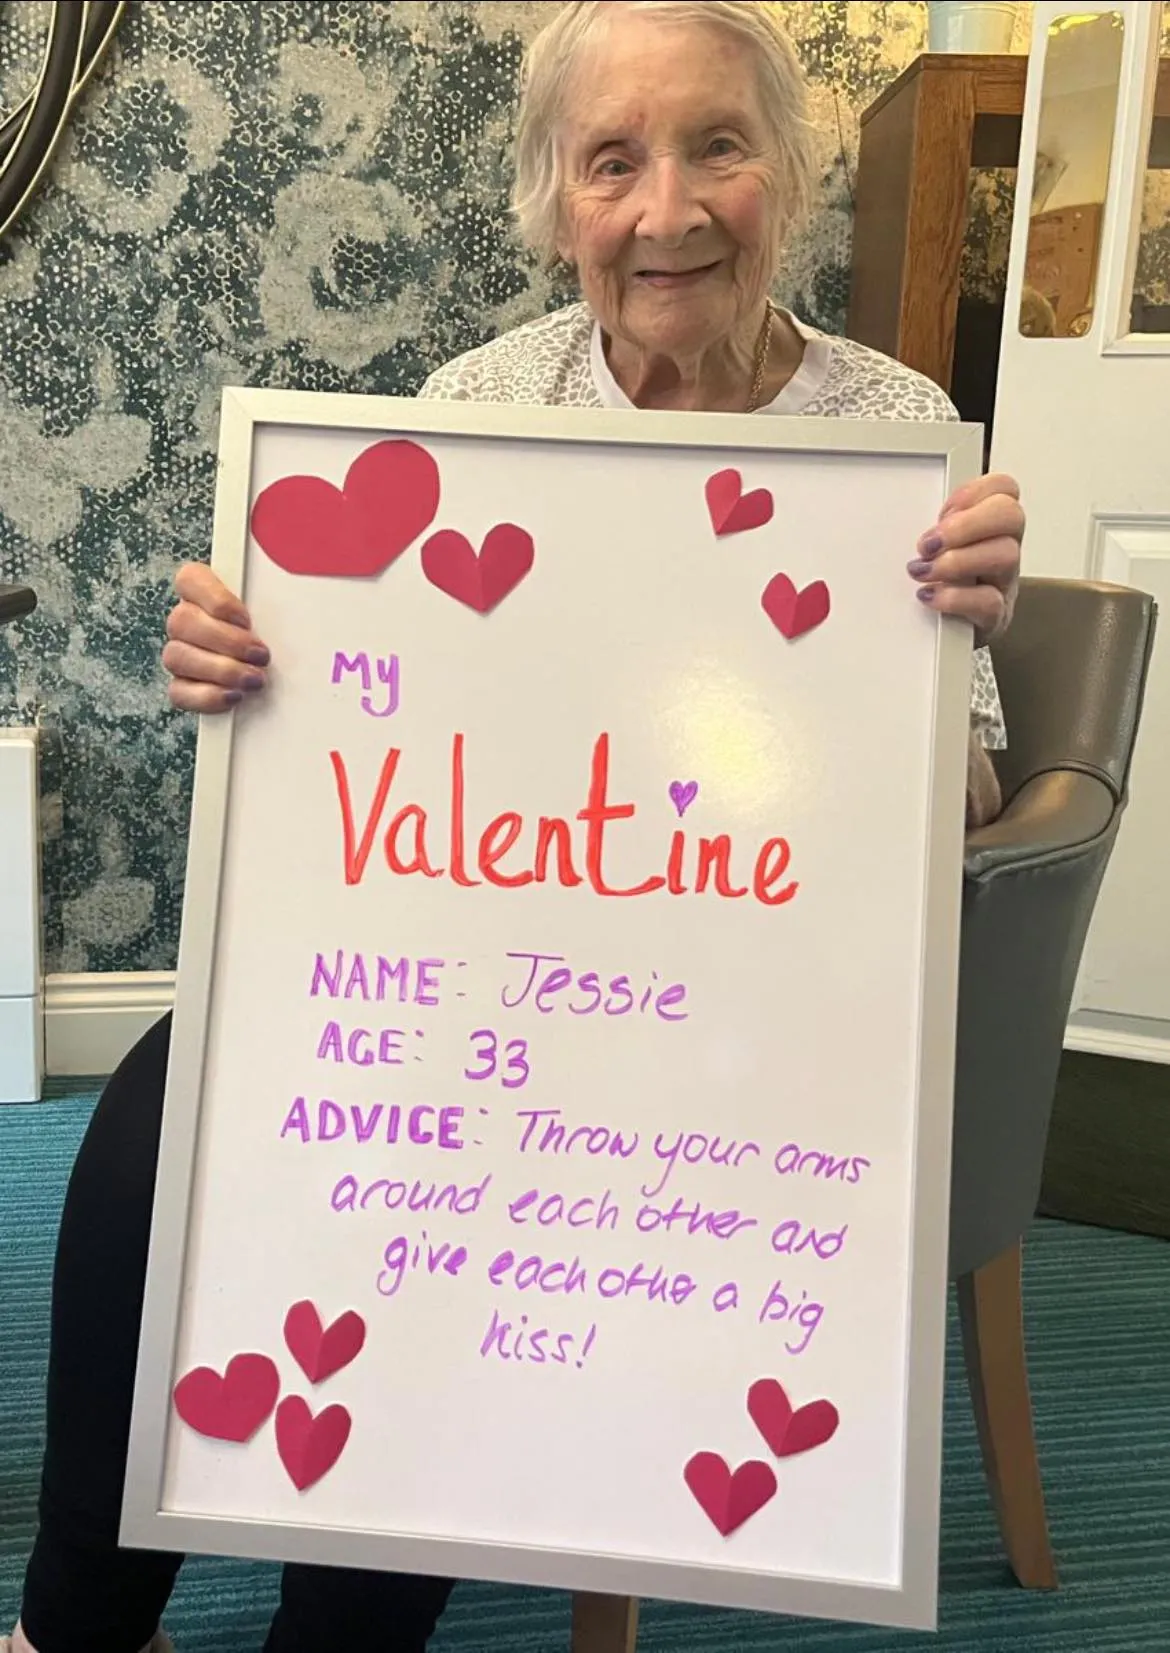 My
Valentine
NAME: Jessie
AGE: 33
ADVICE: Throw your arms
around each other and
give each othe a big
kiss!